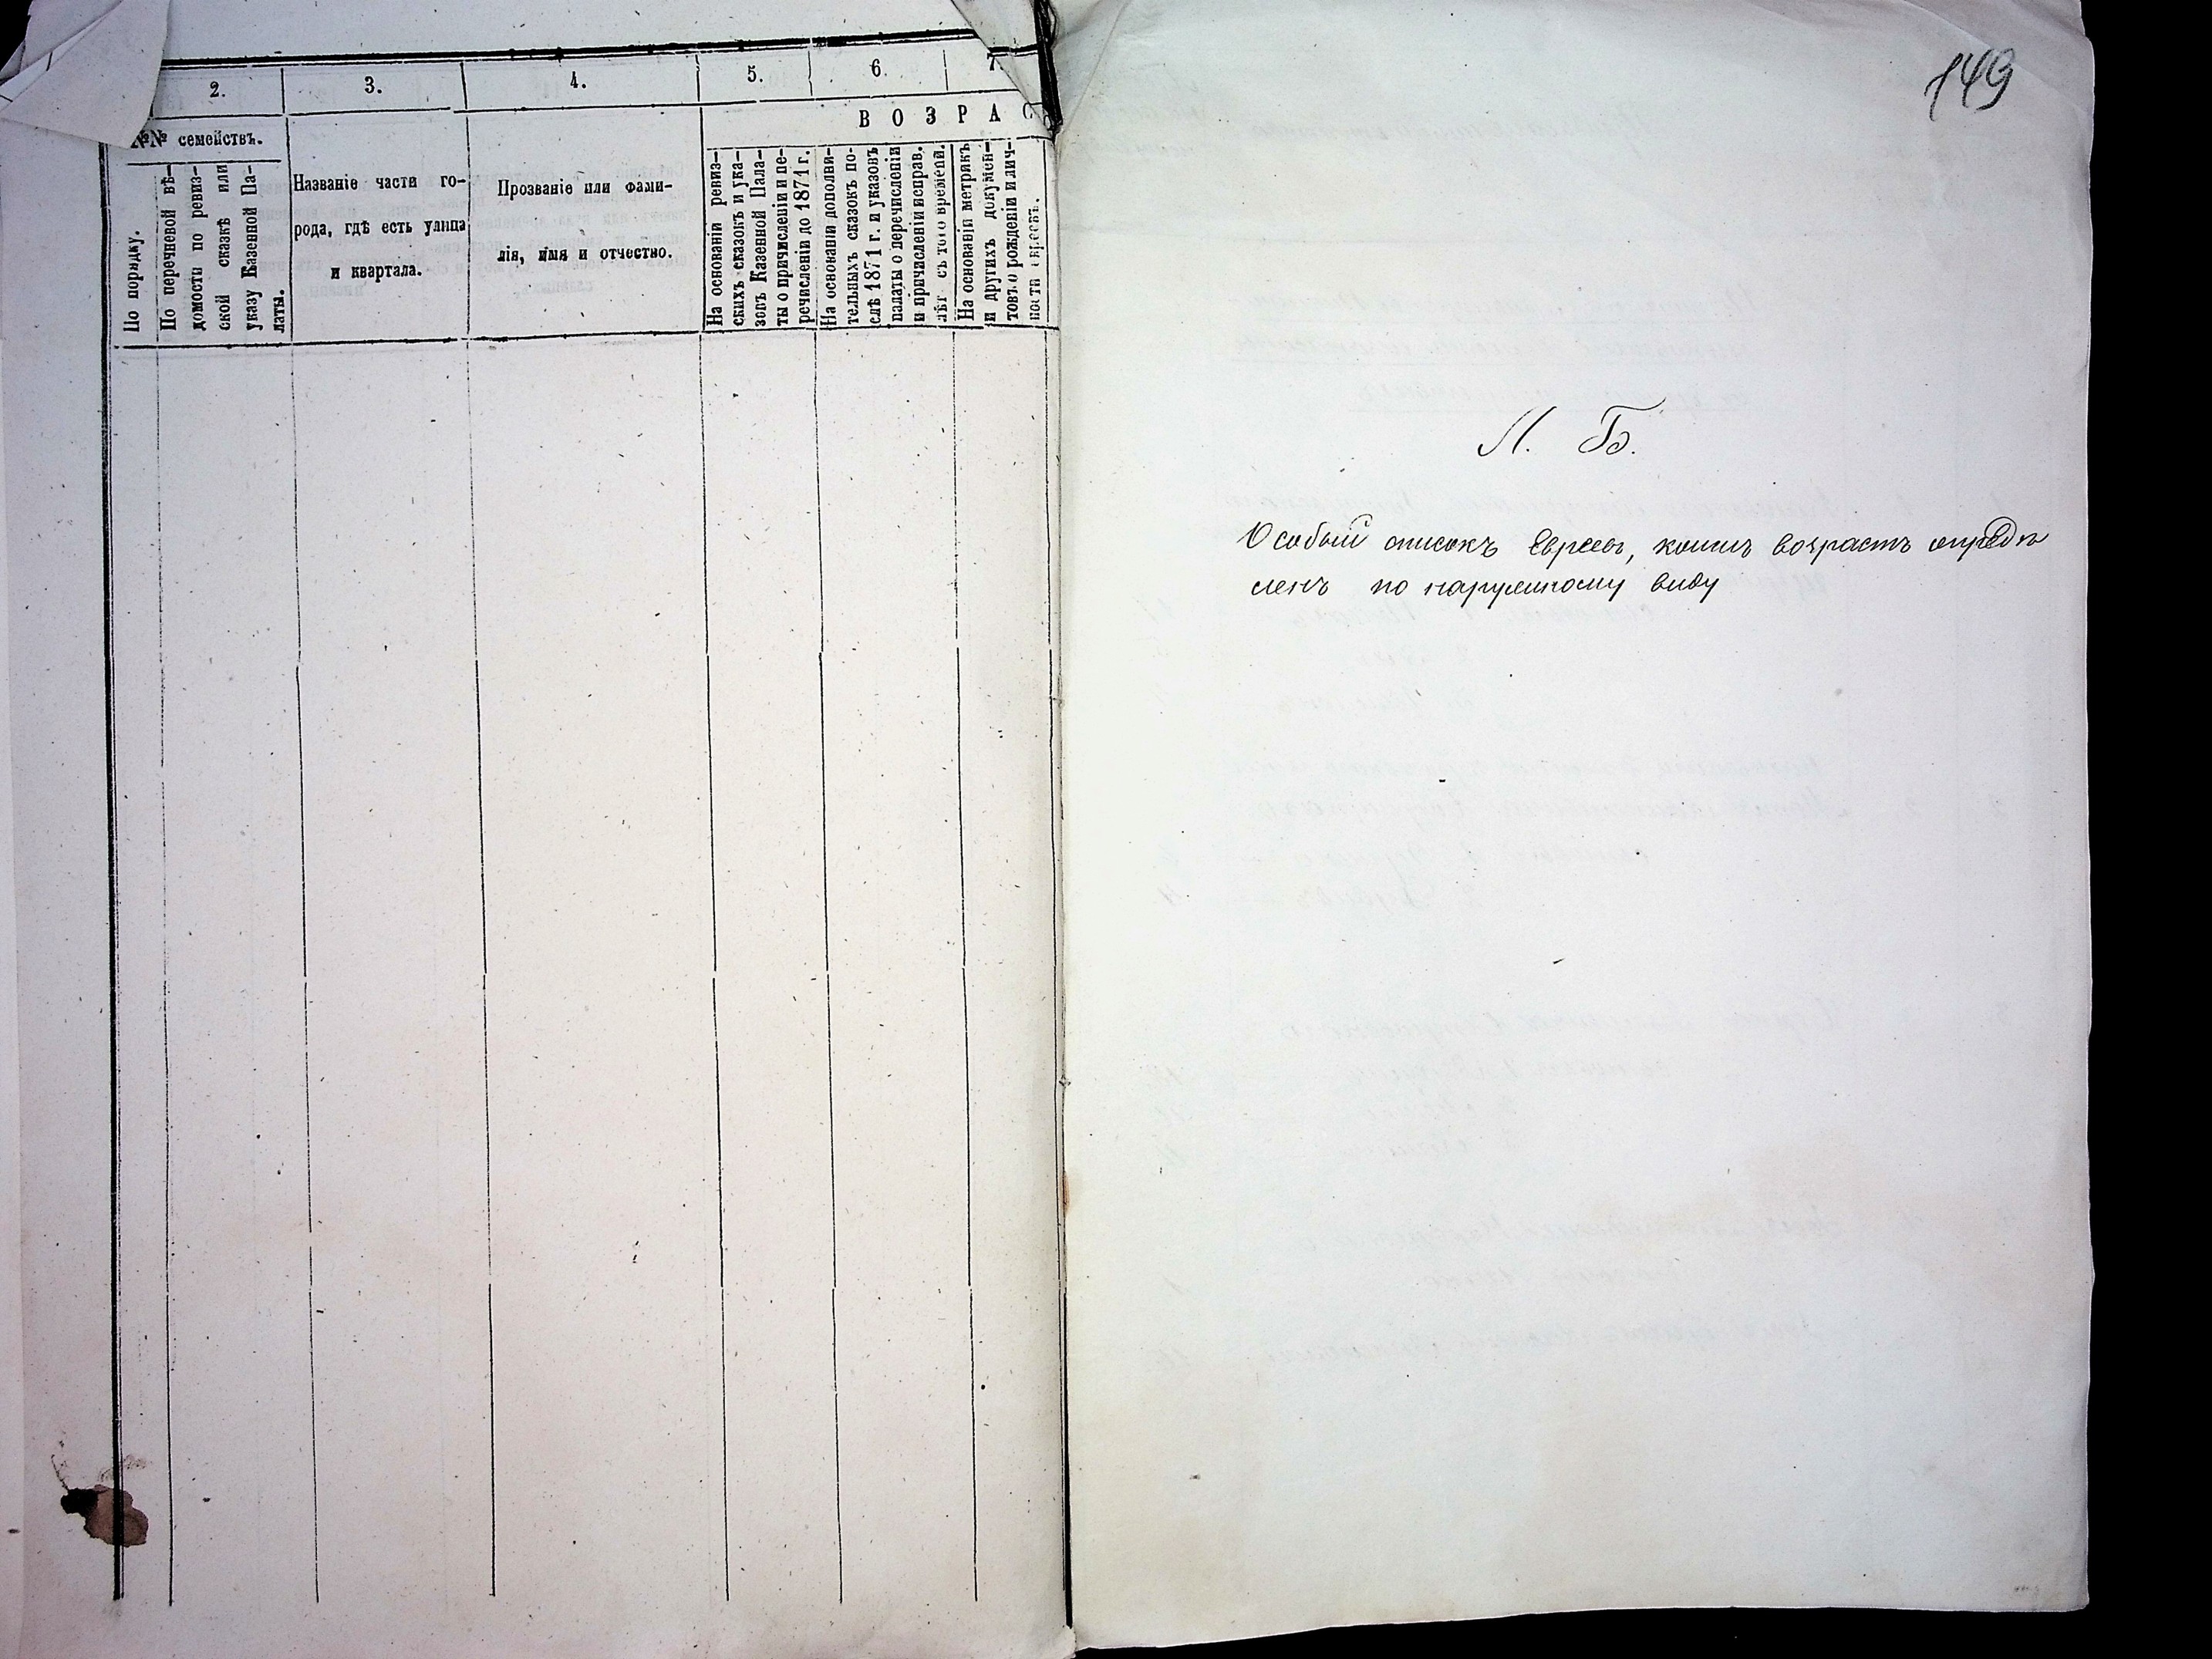 2. 3. 4. 5. 6. 7.
В О З Р А С
№№ семействъ.
По порядку.
По перечневой вѣ-
домости по ревиз-
ской сказкѣ или
указу Казенной Па-
латы.
Названіе части го-
рода, гдѣ есть улица
и квартала.
Прозваніе или фами-
лія, имя и отчество.
На основаніи ревиз-
скихъ сказокъ и ука-
зовъ Казенной Пала-
ты о причисленіи и пе-
речисленіи до 1871 г.
На основаніи дополни-
тельныхъ сказокъ по-
слѣ 1871 г. и указовъ
палаты о перечисленіи
и причисленіи исправ.
лѣт съ того времени.
На основаніи метрикъ
и другихъ докумен-
товъ о рожденіи и лич-
ности евреевъ.
149
Л. Б.
Особый списокъ Евреевъ, коимъ возрастъ опредѣ
ленъ по наружному виду